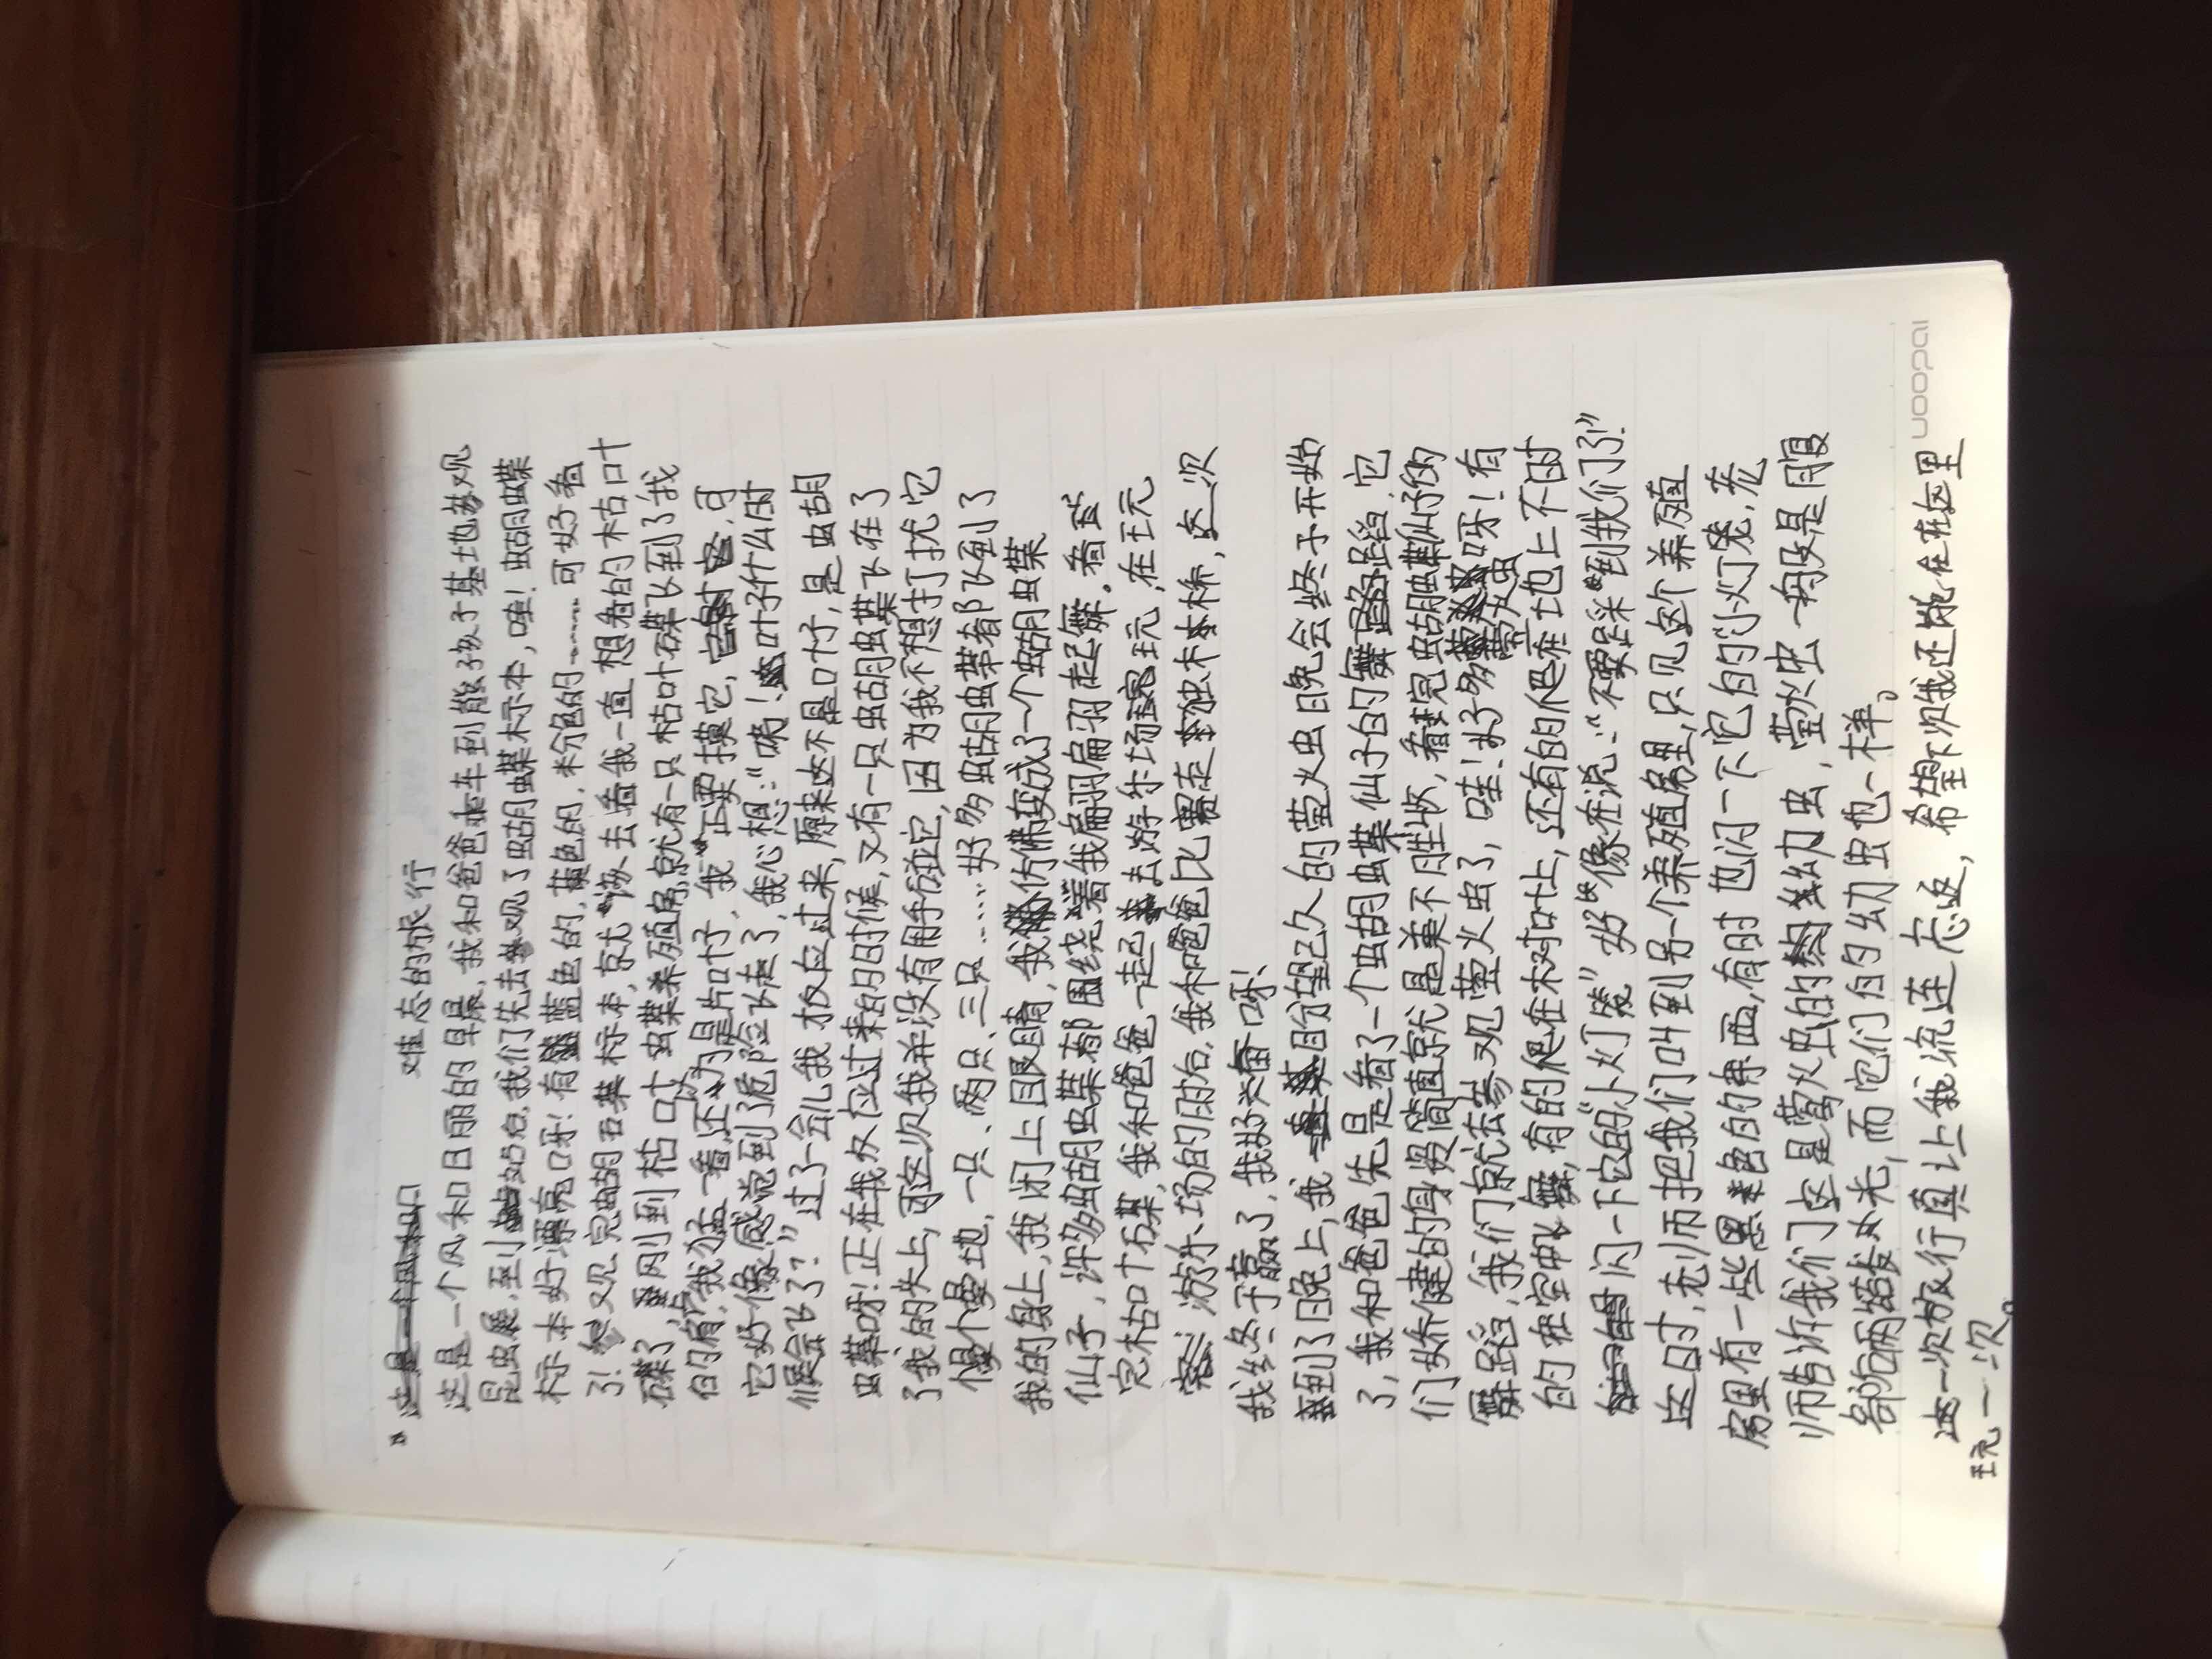 难忘的旅行
这是一个风和日丽的早晨,我和爸爸坐车到熊孩子基地参观
昆虫展,到站点,我们先去参观了蝴蝶标本,哇!蝴蝶
标本好漂亮呀!有蓝色的,黄色的,粉色的……可好看
了!参观完蝴蝶标本,就该去看我一直想看的枯叶
蝶了,刚到枯叶蝶养殖房,就有一只枯叶蝶飞到了我
的肩膀,我猛一看,还以为是片叶子,我正要摸它,可
它好像感觉到了危险飞走了,我心想:“咦!这叶子什么时
候会飞了?”过了一会儿我才反应过来,原来这不是叶子,是蝴
蝶呀!正在我反应过来的时候,又有一只蝴蝶飞在了
了我的头上,可这次我并没有用手碰它,因为我不想打扰它
慢慢地,一只、两只、三只……好多蝴蝶都飞到了
我的身上,我闭上眼睛,我仿佛变成了一个蝴蝶
仙子,许多蝴蝶都围绕着我翩翩起舞。看
完枯叶蝶,我和爸爸一起去游乐场玩,在玩
游乐场的时后,我和爸爸比赛走独木桥,这次
我终于赢了,我好兴奋呀!
到了晚上,我盼望已久的萤火虫晚会终于开始
了,我和爸爸先是看了一个蝴蝶仙子的舞蹈,它
们娇健的身资简直就是美不胜收,看完蝴蝶仙子的
舞蹈,我们就去参观萤火虫了,哇!好多萤火虫呀!有
的在空中飞舞,有的爬在树叶上,还有的爬在地上不时
闪一下它的“小灯笼”好像在说:“不要踩到我们了!”
这时,老师把我们叫到另一个养殖房里,只见这个养殖
房里有一些黑色的东西,有时也闪一下它的“小灯笼,老
师告诉我们这是萤火虫的幼虫,萤火虫一般是用腹
部后两节发光,而它们的幼虫也一样。
这一次旅行真让我流连忘返,希望下次我还能在这里
玩一次。
noopai